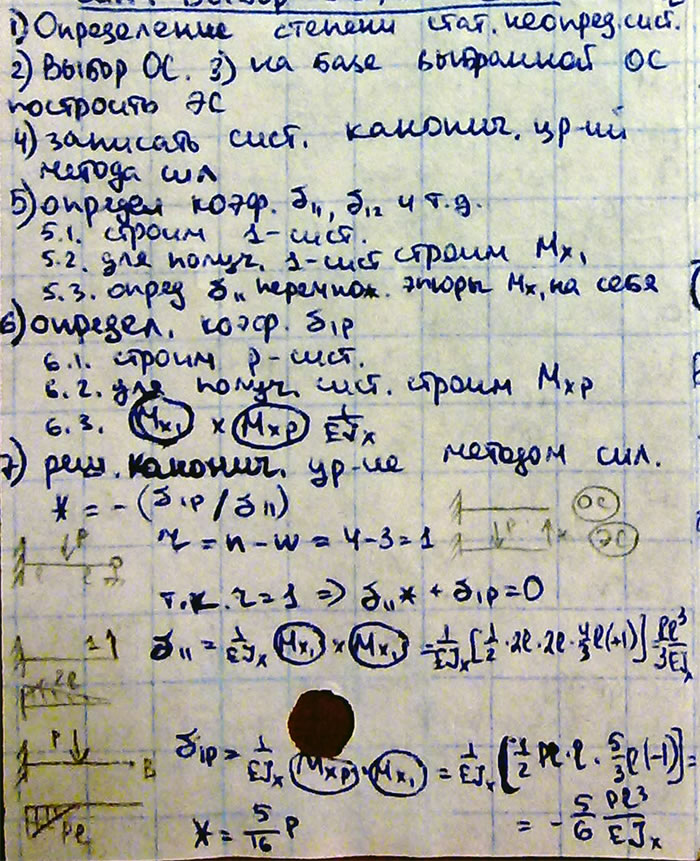 1) Определение степени стат. неопред. сист.
2) Выбор ОС. 3) на базе выбранной ОС
построить ЭС
4) записать сист. канонич. ур-ий
метода сил
5) определ коэф. δ₁₁, δ₁₂ и т.д.
5.1. строим 1-сист.
5.2. для получ. 1-сист строим Mx₁
5.3. опред δ₁₁ перемнож. эпюры Mx₁ на себя
6) определ. коэф. δ₁p
6.1. строим p-сист.
6.2. для получ. сист. строим Mxp
6.3. Mx₁ × Mxp 1/EJx
7) реш. канонич. ур-ие методом сил.
X = - (δ₁p / δ₁₁)
ОС
P
r = n - w = 4 - 3 = 1
P x ЭС
l l
т.к. r = 1 => δ₁₁x + δ₁p = 0
1
δ₁₁ = 1/EJx Mx₁ × Mx₁ = 1/EJx [1/2 · 2l · 2l · 4/3 l (+1)] Pl³/3EJx
2l
P B
δ₁p = 1/EJx Mxp · Mx₁ = 1/EJx [1/2 Pl · l · 5/3 l (-1)] =
Pl
X = 5/16 P
= - 5/6 Pl³/EJx